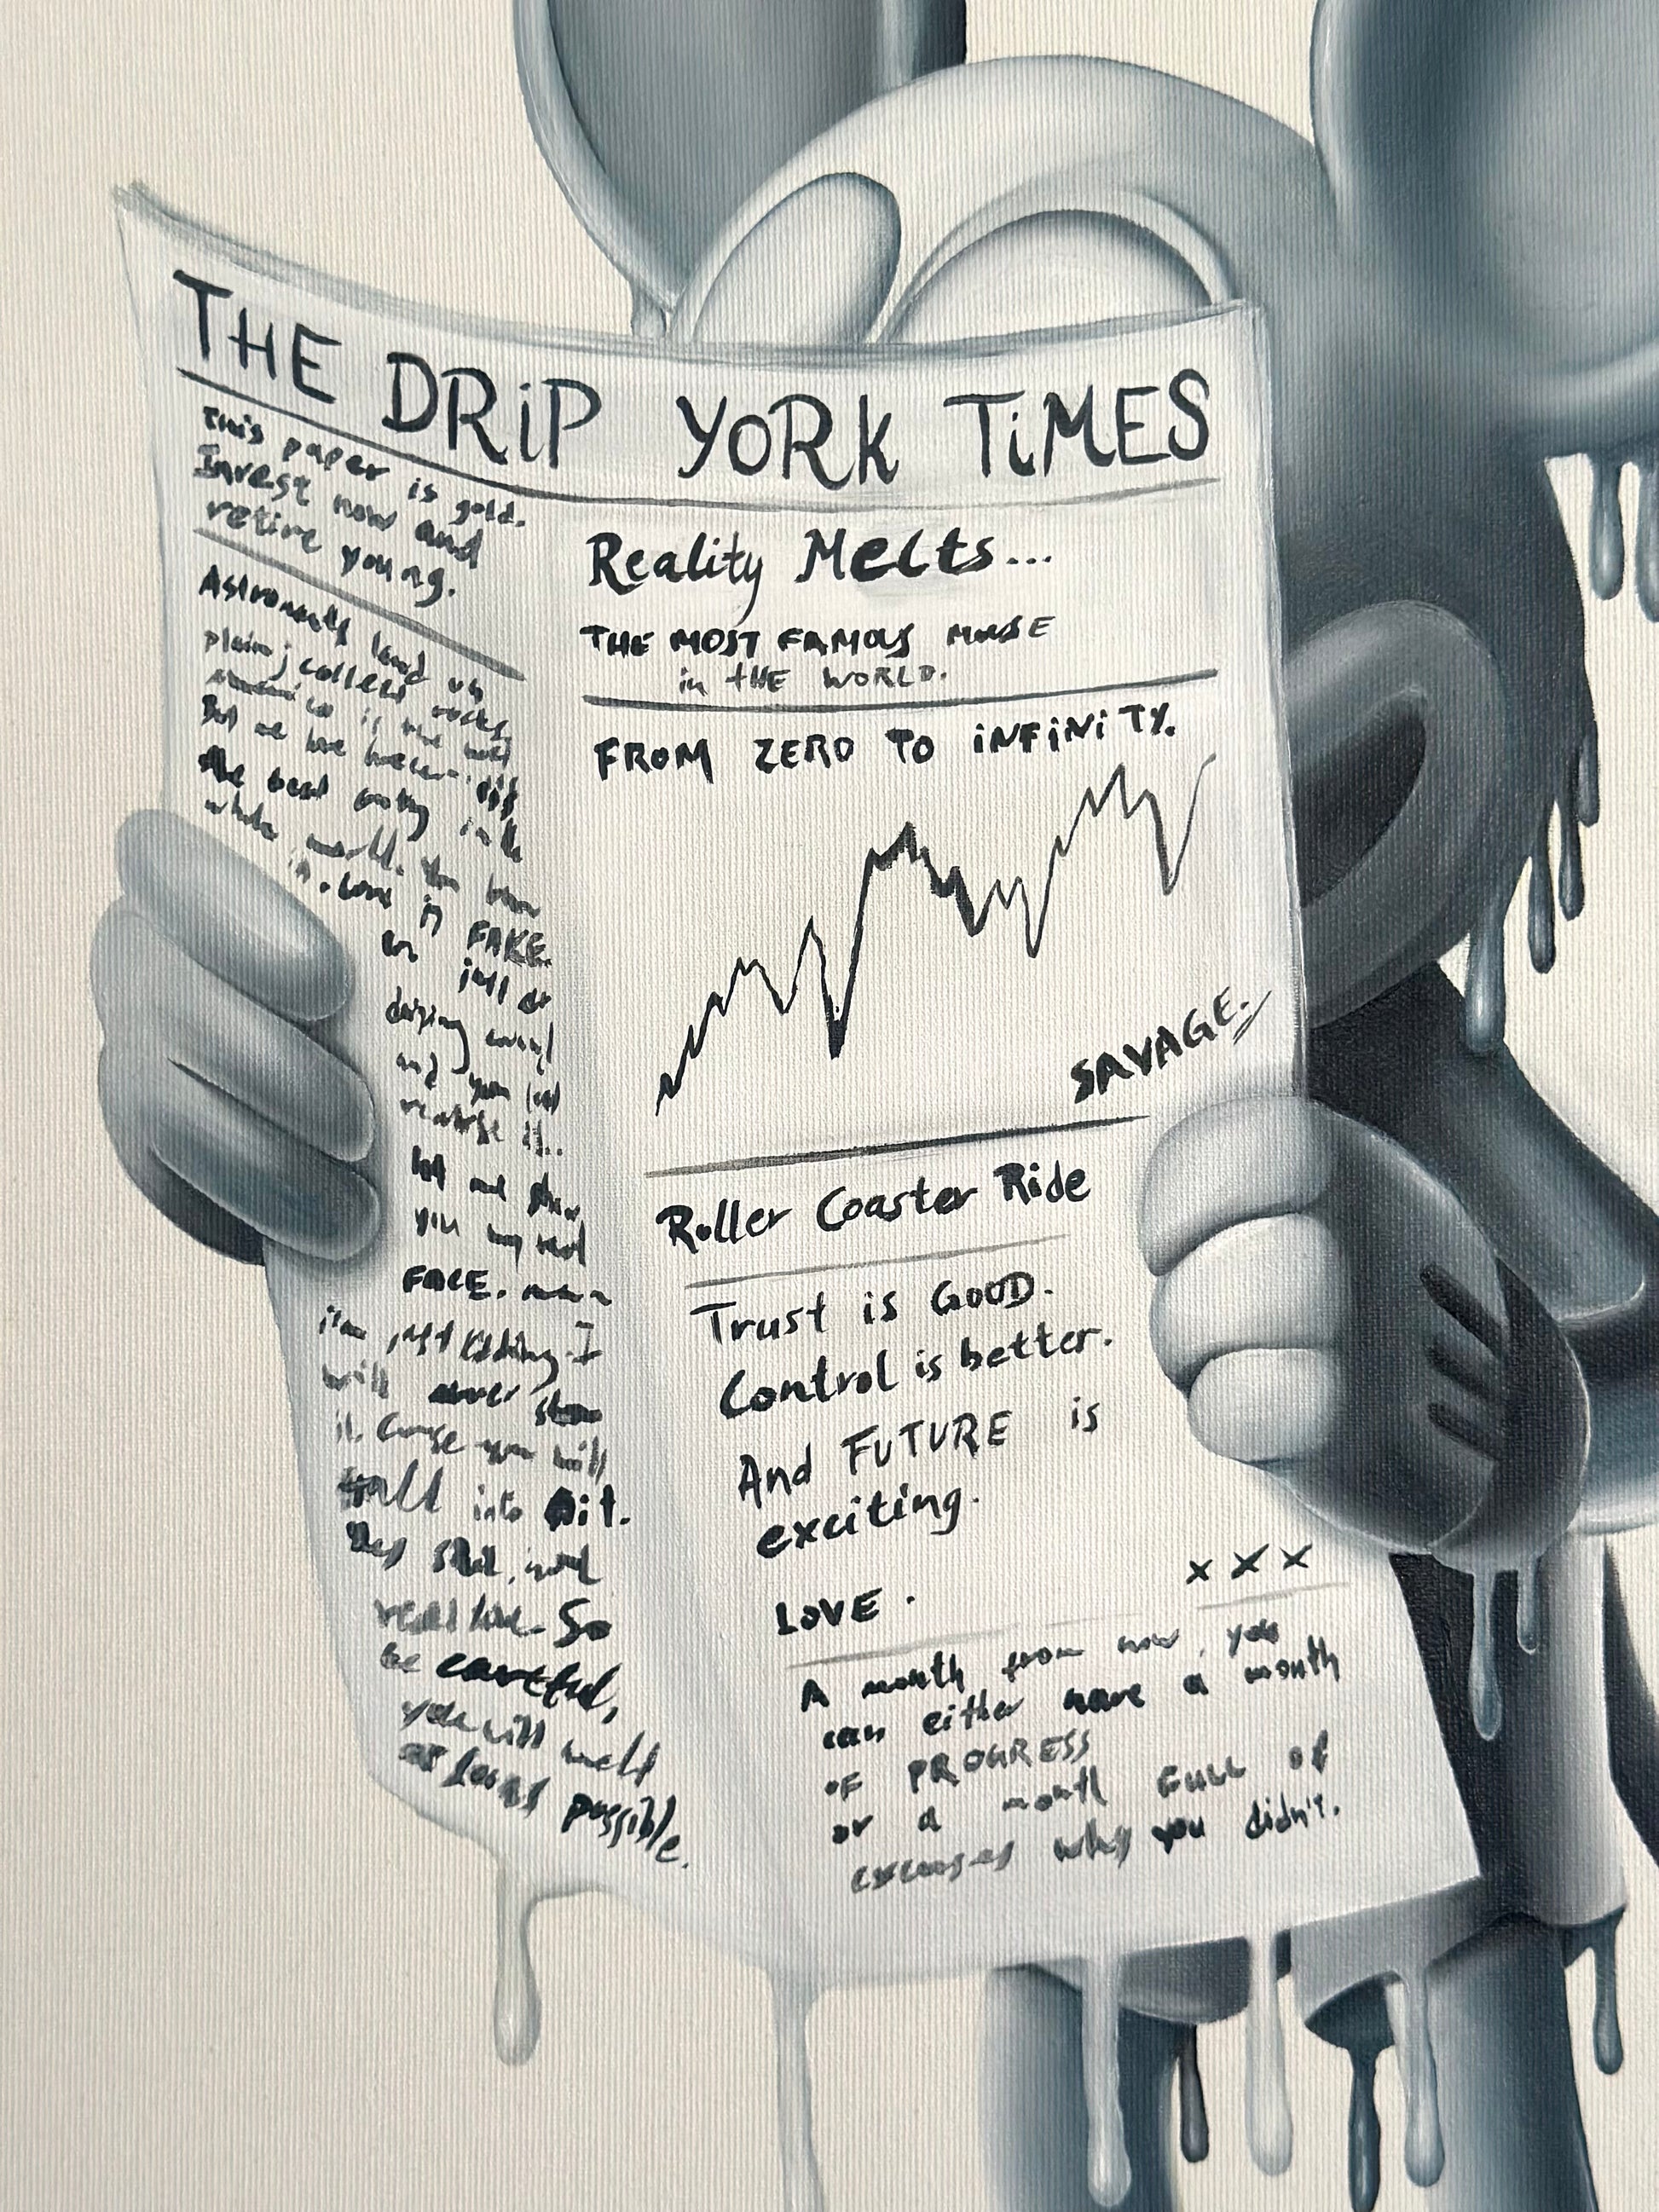 THE DRiP YORK TiMES
This paper is gold.
Invest now and
retire young.
Astronauts land on
collect rocks,
is the
But we
the best in the
whole world. You
in. Love is FAKE.
full of
and you
realise it...
let me show
you my real
FACE.
i'm just kidding. I
will never show
it. Cause you will
fall into it.
real love. So
be careful,
you will melt
as long as possible.
Reality Melts...
THE MOST FAMOUS MOUSE
in tHE WORLD.
FROM ZERO TO iNFiNiTY.
SAVAGE.
Roller Coaster Ride
Trust is GOOD.
Control is better.
And FUTURE is
exciting.
LOVE.
x x x
A month from now, you
can either have a month
OF PROGRESS
or a month FULL of
excuses why you didn't.